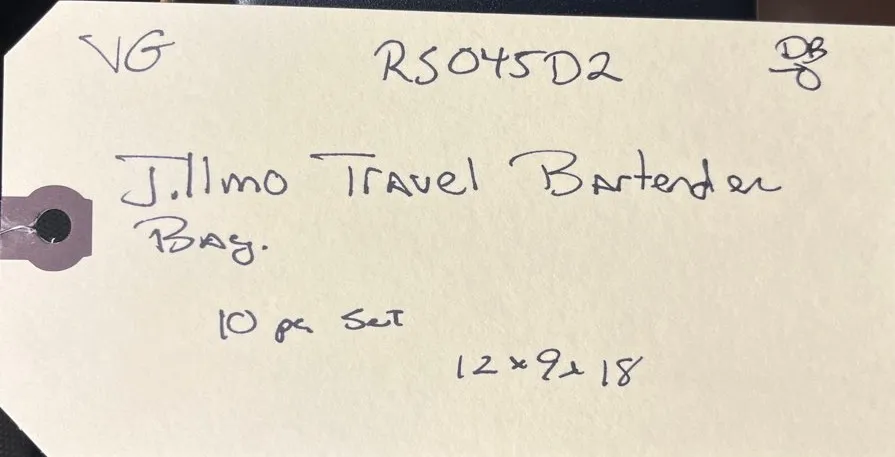 VG RS045D2 DB
Jillmo Travel Bartender
Bag.
10 pc Set
12x9x18